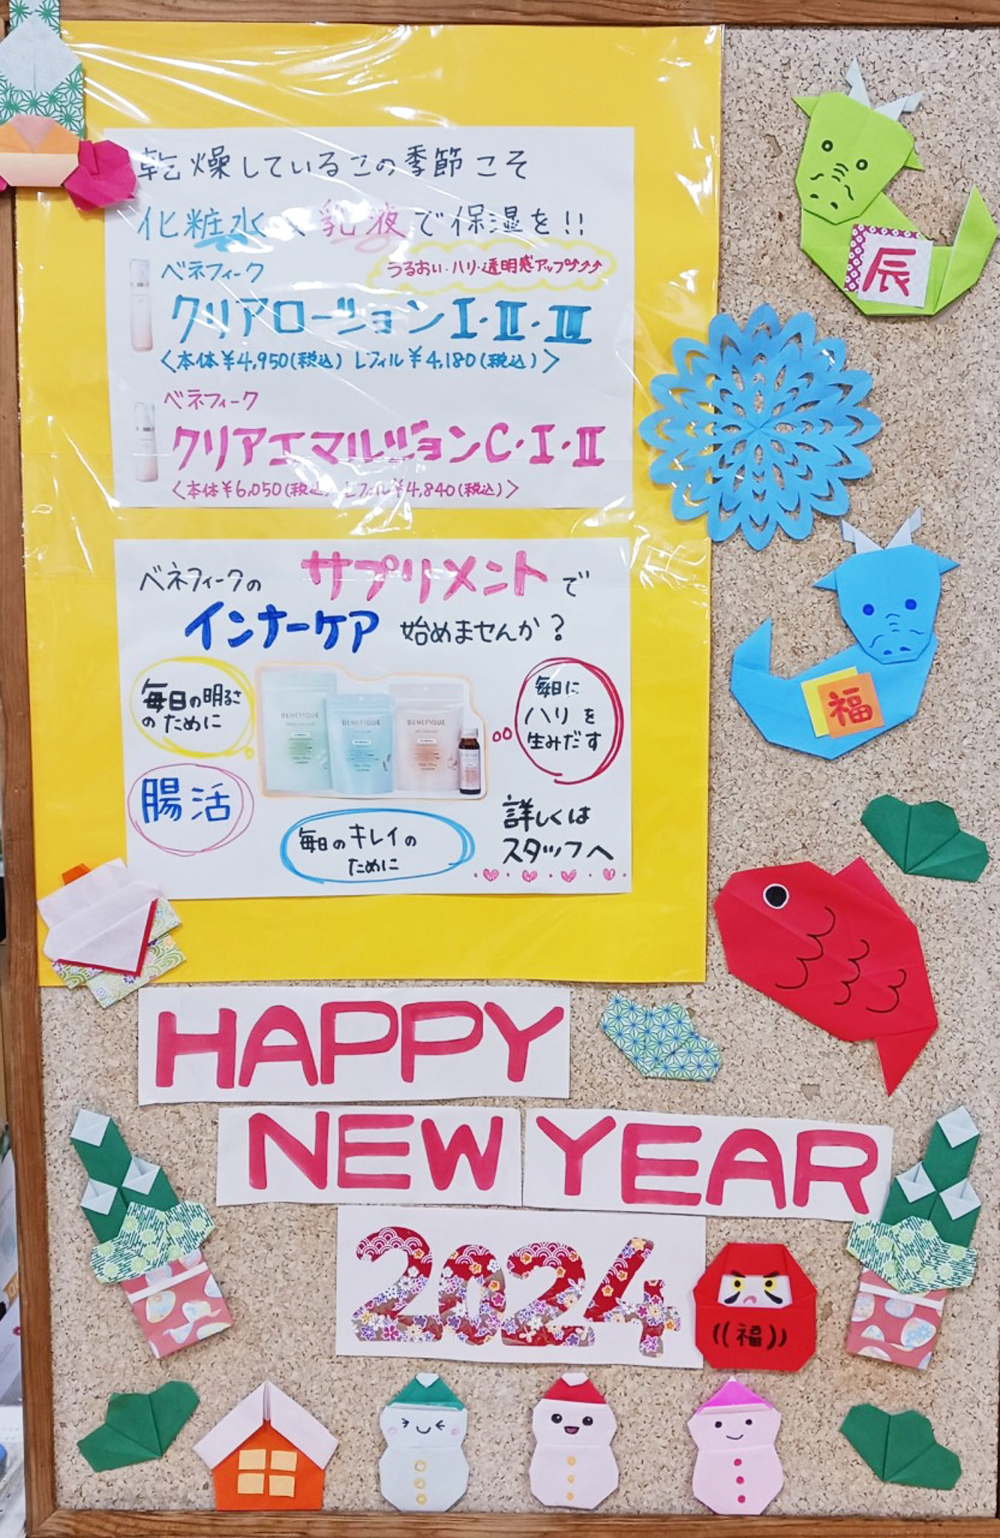 乾燥しているこの季節こそ
化粧水と乳液で保湿を!!
ベネフィーク
うるおい・ハリ・透明感アップ↑↑↑
クリアローションⅠ・Ⅱ・Ⅲ
<本体¥4,950(税込) レフィル¥4,180(税込)>
ベネフィーク
クリアエマルジョンC・Ⅰ・Ⅱ
<本体¥6,050(税込) レフィル¥4,840(税込)>
ベネフィークの サプリメントで
インナーケア 始めませんか?
毎日の明るさ
のために
毎日に
ハリを
生みだす
BENEFIQUE
BENEFIQUE
BENEFIQUE
腸活
毎日のキレイの
ために
詳しくは
スタッフへ
辰
福
HAPPY
NEW YEAR
2024
((福))